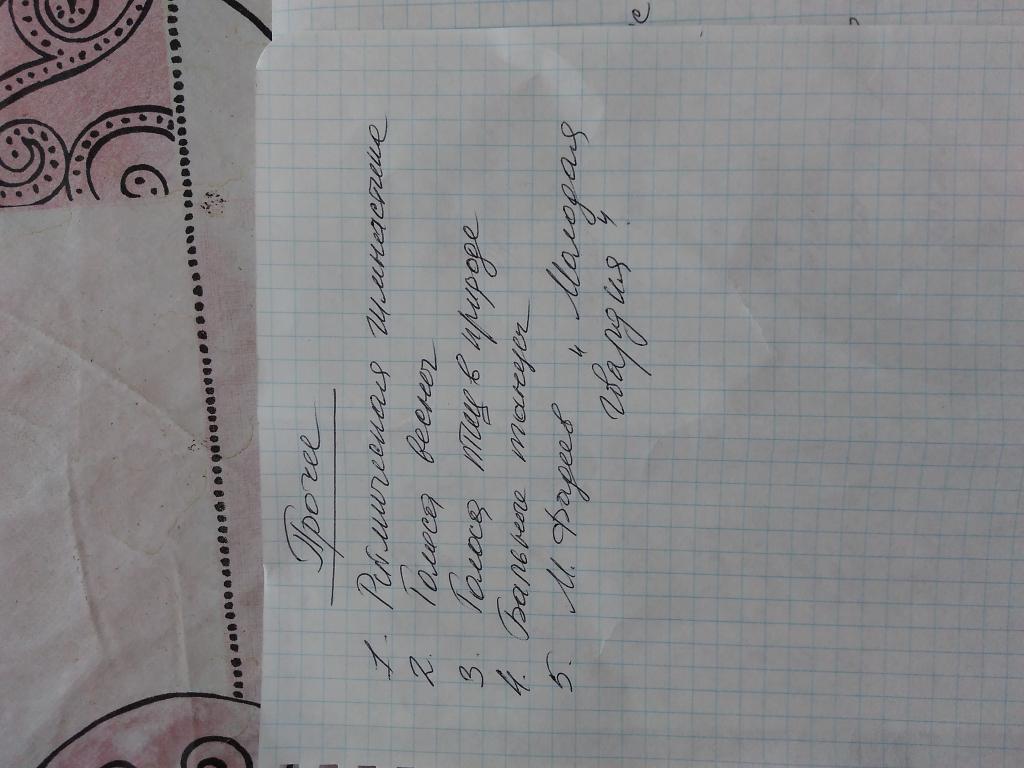 Прочее
1. Ритмическая гимнастика
2. Голоса весны
3. Голоса птиц в природе
4. Бальные танцы
5. М. Фадеев "Молодая
гвардия"